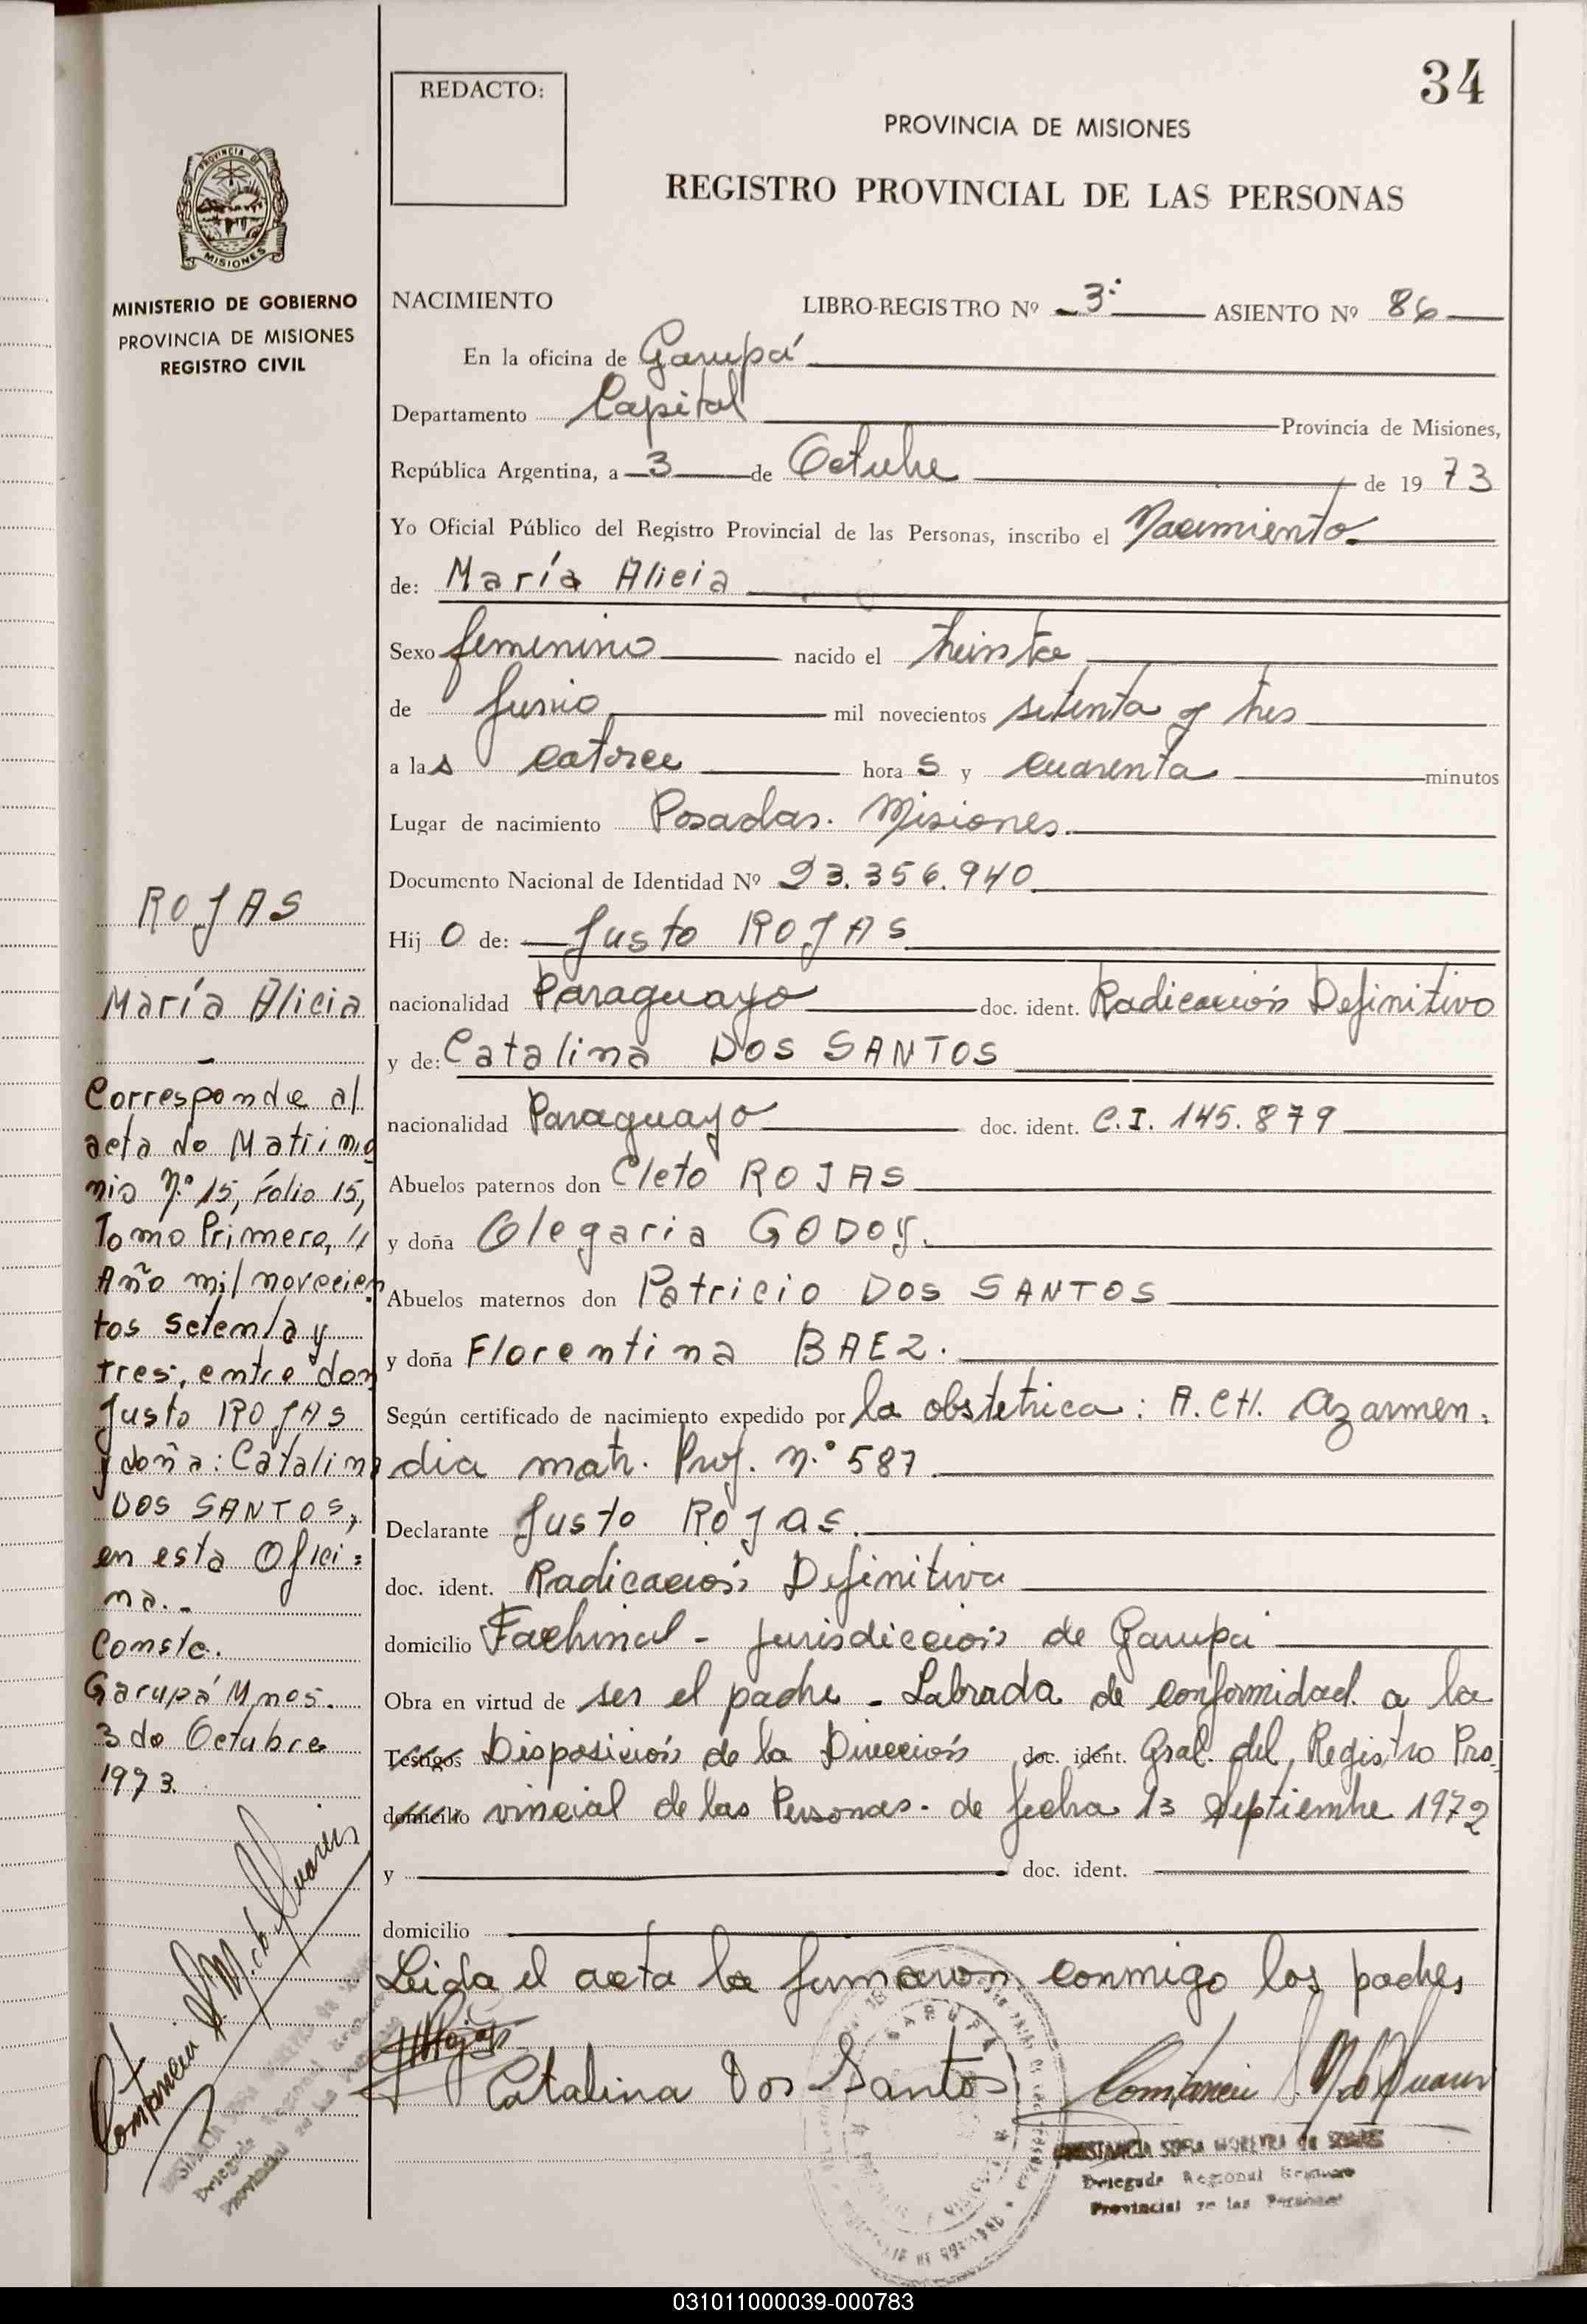 34
REDACTO:
PROVINCIA DE MISIONES
REGISTRO PROVINCIAL DE LAS PERSONAS
PROVINCIA DE
MISIONES
MINISTERIO DE GOBIERNO
PROVINCIA DE MISIONES
REGISTRO CIVIL
NACIMIENTO LIBRO-REGISTRO Nº 3º ASIENTO Nº 86
En la oficina de Garupá
Departamento Capital Provincia de Misiones,
República Argentina, a 3 de Octubre de 19 73
Yo Oficial Público del Registro Provincial de las Personas, inscribo el Nacimiento
de: María Alicia
Sexo femenino nacido el treinta
de Junio mil novecientos setenta y tres
a las catorce horas y cuarenta minutos
Lugar de nacimiento Posadas. Misiones.
Documento Nacional de Identidad Nº 23.356.940
Hij O de: Justo ROJAS
nacionalidad Paraguayo doc. ident. Radicación Definitivo
y de: Catalina DOS SANTOS
nacionalidad Paraguayo doc. ident. C.I. 145.879
Abuelos paternos don Cleto ROJAS
y doña Olegaria GODOY.
Abuelos maternos don Patricio DOS SANTOS
y doña Florentina BAEZ.
Según certificado de nacimiento expedido por la obstetrica: A.CH. Azarmen-
dia matr. Prof. N.º 587
Declarante Justo ROJAS.
doc. ident. Radicación Definitiva
domicilio Fachinal - jurisdicción de Garupá
Obra en virtud de ser el padre - Labrada de conformidad a la
Testigos Disposición de la Dirección doc. ident. Gral. del Registro Pro-
domicilio vincial de las Personas. de fecha 13 Septiembre 1972
y doc. ident.
domicilio
Leida el acta la firmaron conmigo los padres
Rojas
Catalina Dos Santos
CONSTANCIA SOFIA MOREYRA de
Delegada Regional
Provincial de las Personas
GARUPA
ROJAS
María Alicia
-
Corresponde al
acta de Matrimo
nio N.º 15, Folio 15,
Tomo Primero, "
Año mil novecien
tos setenta y
tres, entre don
Justo ROJAS
y doña: Catalina
DOS SANTOS,
en esta Ofici=
na.-
Conste.
Garupá Mnes.
3 de Octubre
1973.
031011000039-000783